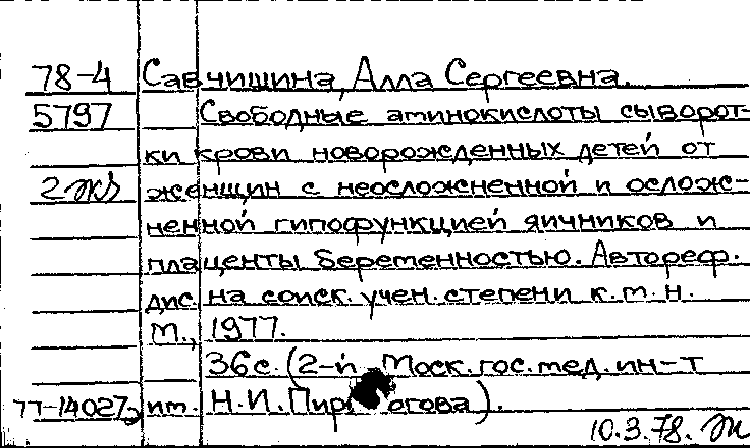 78-4 Савчишина, Алла Сергеевна.
5797 Свободные аминокислоты сыворот-
ки крови новорожденных детей от
2 экз женщин с неосложненной и ослож-
ненной гипофункцией яичников и
плаценты беременностью. Автореф.
дис. на соиск. учен. степени к.м.н.
М., 1977.
36с. (2-й Моск. гос. мед. ин-т
77-14027 им. Н.И. Пирогова).
10.3.78.